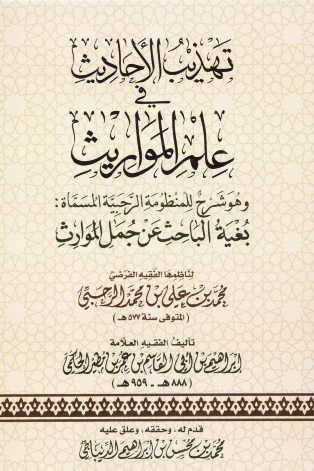 تهذيب الأحاديث
في
علم المواريث
وهو شرح للمنظومة الرحبية المسماة:
بغية الباحث عن جمل الموارث
لناظمها الفقيه الفرضي
محمد بن علي بن محمد الرحبي
(المتوفى سنة ٥٧٧هـ)
تأليف الفقيه العلامة
إبراهيم بن أبي القاسم بن عمر بن مطير الحكمي
(٨٨٨هـ - ٩٥٩هـ)
قدم له، وحققه، وعلق عليه
محمد بن محسن بن إبراهيم الديباجي